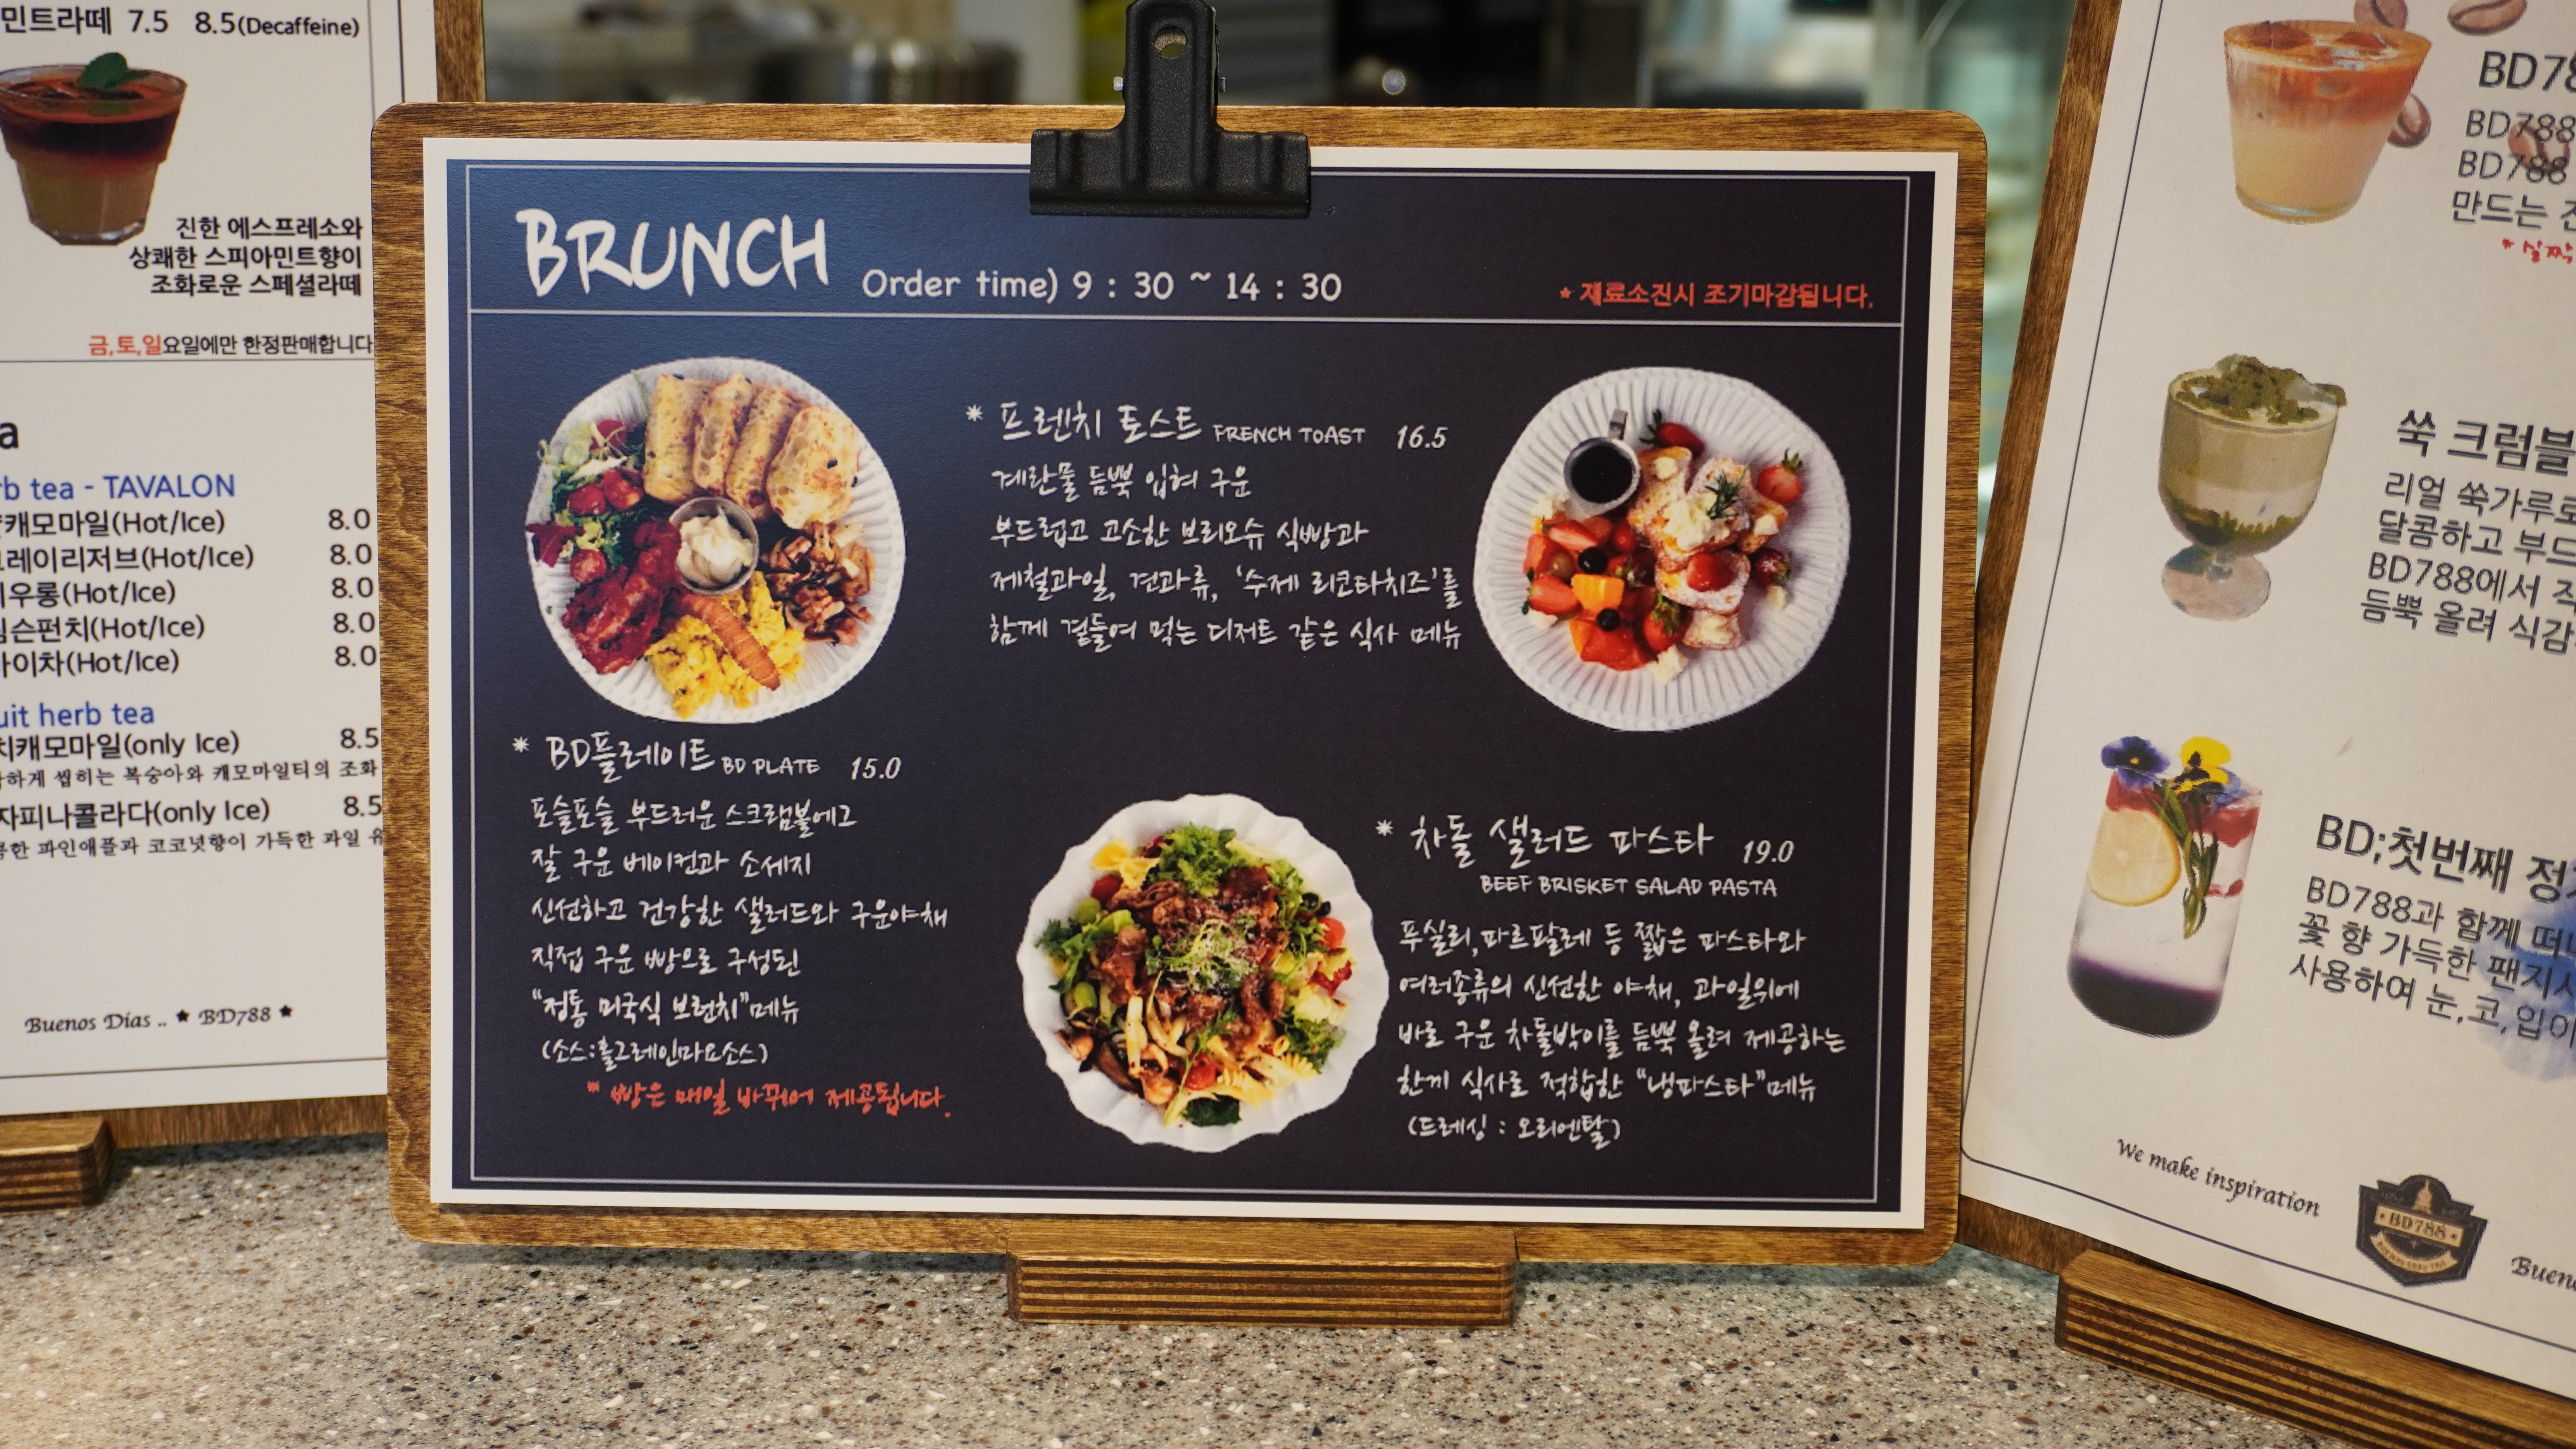 민트라떼 7.5 8.5(Decaffeine)
진한 에스프레소와
상쾌한 스피아민트향이
조화로운 스페셜라떼
금,토,일요일에만 한정판매합니다
tea - TAVALON
캐모마일(Hot/Ice) 8.0
그레이리저브(Hot/Ice) 8.0
우롱(Hot/Ice) 8.0
펀치(Hot/Ice) 8.0
차(Hot/Ice) 8.0
herb tea
캐모마일(only Ice) 8.5
씹히는 복숭아와 캐모마일티의 조화
피나콜라다(only Ice) 8.5
파인애플과 코코넛향이 가득한 과일
Buenos Días .. ★ BD788 ★
BRUNCH
Order time) 9 : 30 ~ 14 : 30
* 재료소진시 조기마감됩니다.
* 프렌치 토스트 FRENCH TOAST 16.5
계란물 듬뿍 입혀 구운
부드럽고 고소한 브리오슈 식빵과
제철과일, 견과류, '수제 리코타치즈'를
함께 곁들여 먹는 디저트 같은 식사 메뉴
* BD플레이트 BD PLATE 15.0
포슬포슬 부드러운 스크램블에그
잘 구운 베이컨과 소세지
신선하고 건강한 샐러드와 구운야채
직접 구운 빵으로 구성된
"정통 미국식 브런치"메뉴
(소스:홀그레인마요소스)
* 빵은 매일 바뀌어 제공됩니다.
* 차돌 샐러드 파스타 19.0
BEEF BRISKET SALAD PASTA
푸실리,파르팔레 등 짧은 파스타와
여러종류의 신선한 야채, 과일위에
바로 구운 차돌박이를 듬뿍 올려 제공하는
한끼 식사로 적합한 "냉파스타"메뉴
(드레싱 : 오리엔탈)
BD788
BD788
만드는
쑥 크럼블
리얼 쑥가루로
달콤하고
BD788에서
듬뿍 올려
BD;첫번째
BD788과 함께
꽃 향 가득한
사용하여 눈,코,입이
We make inspiration
BD788